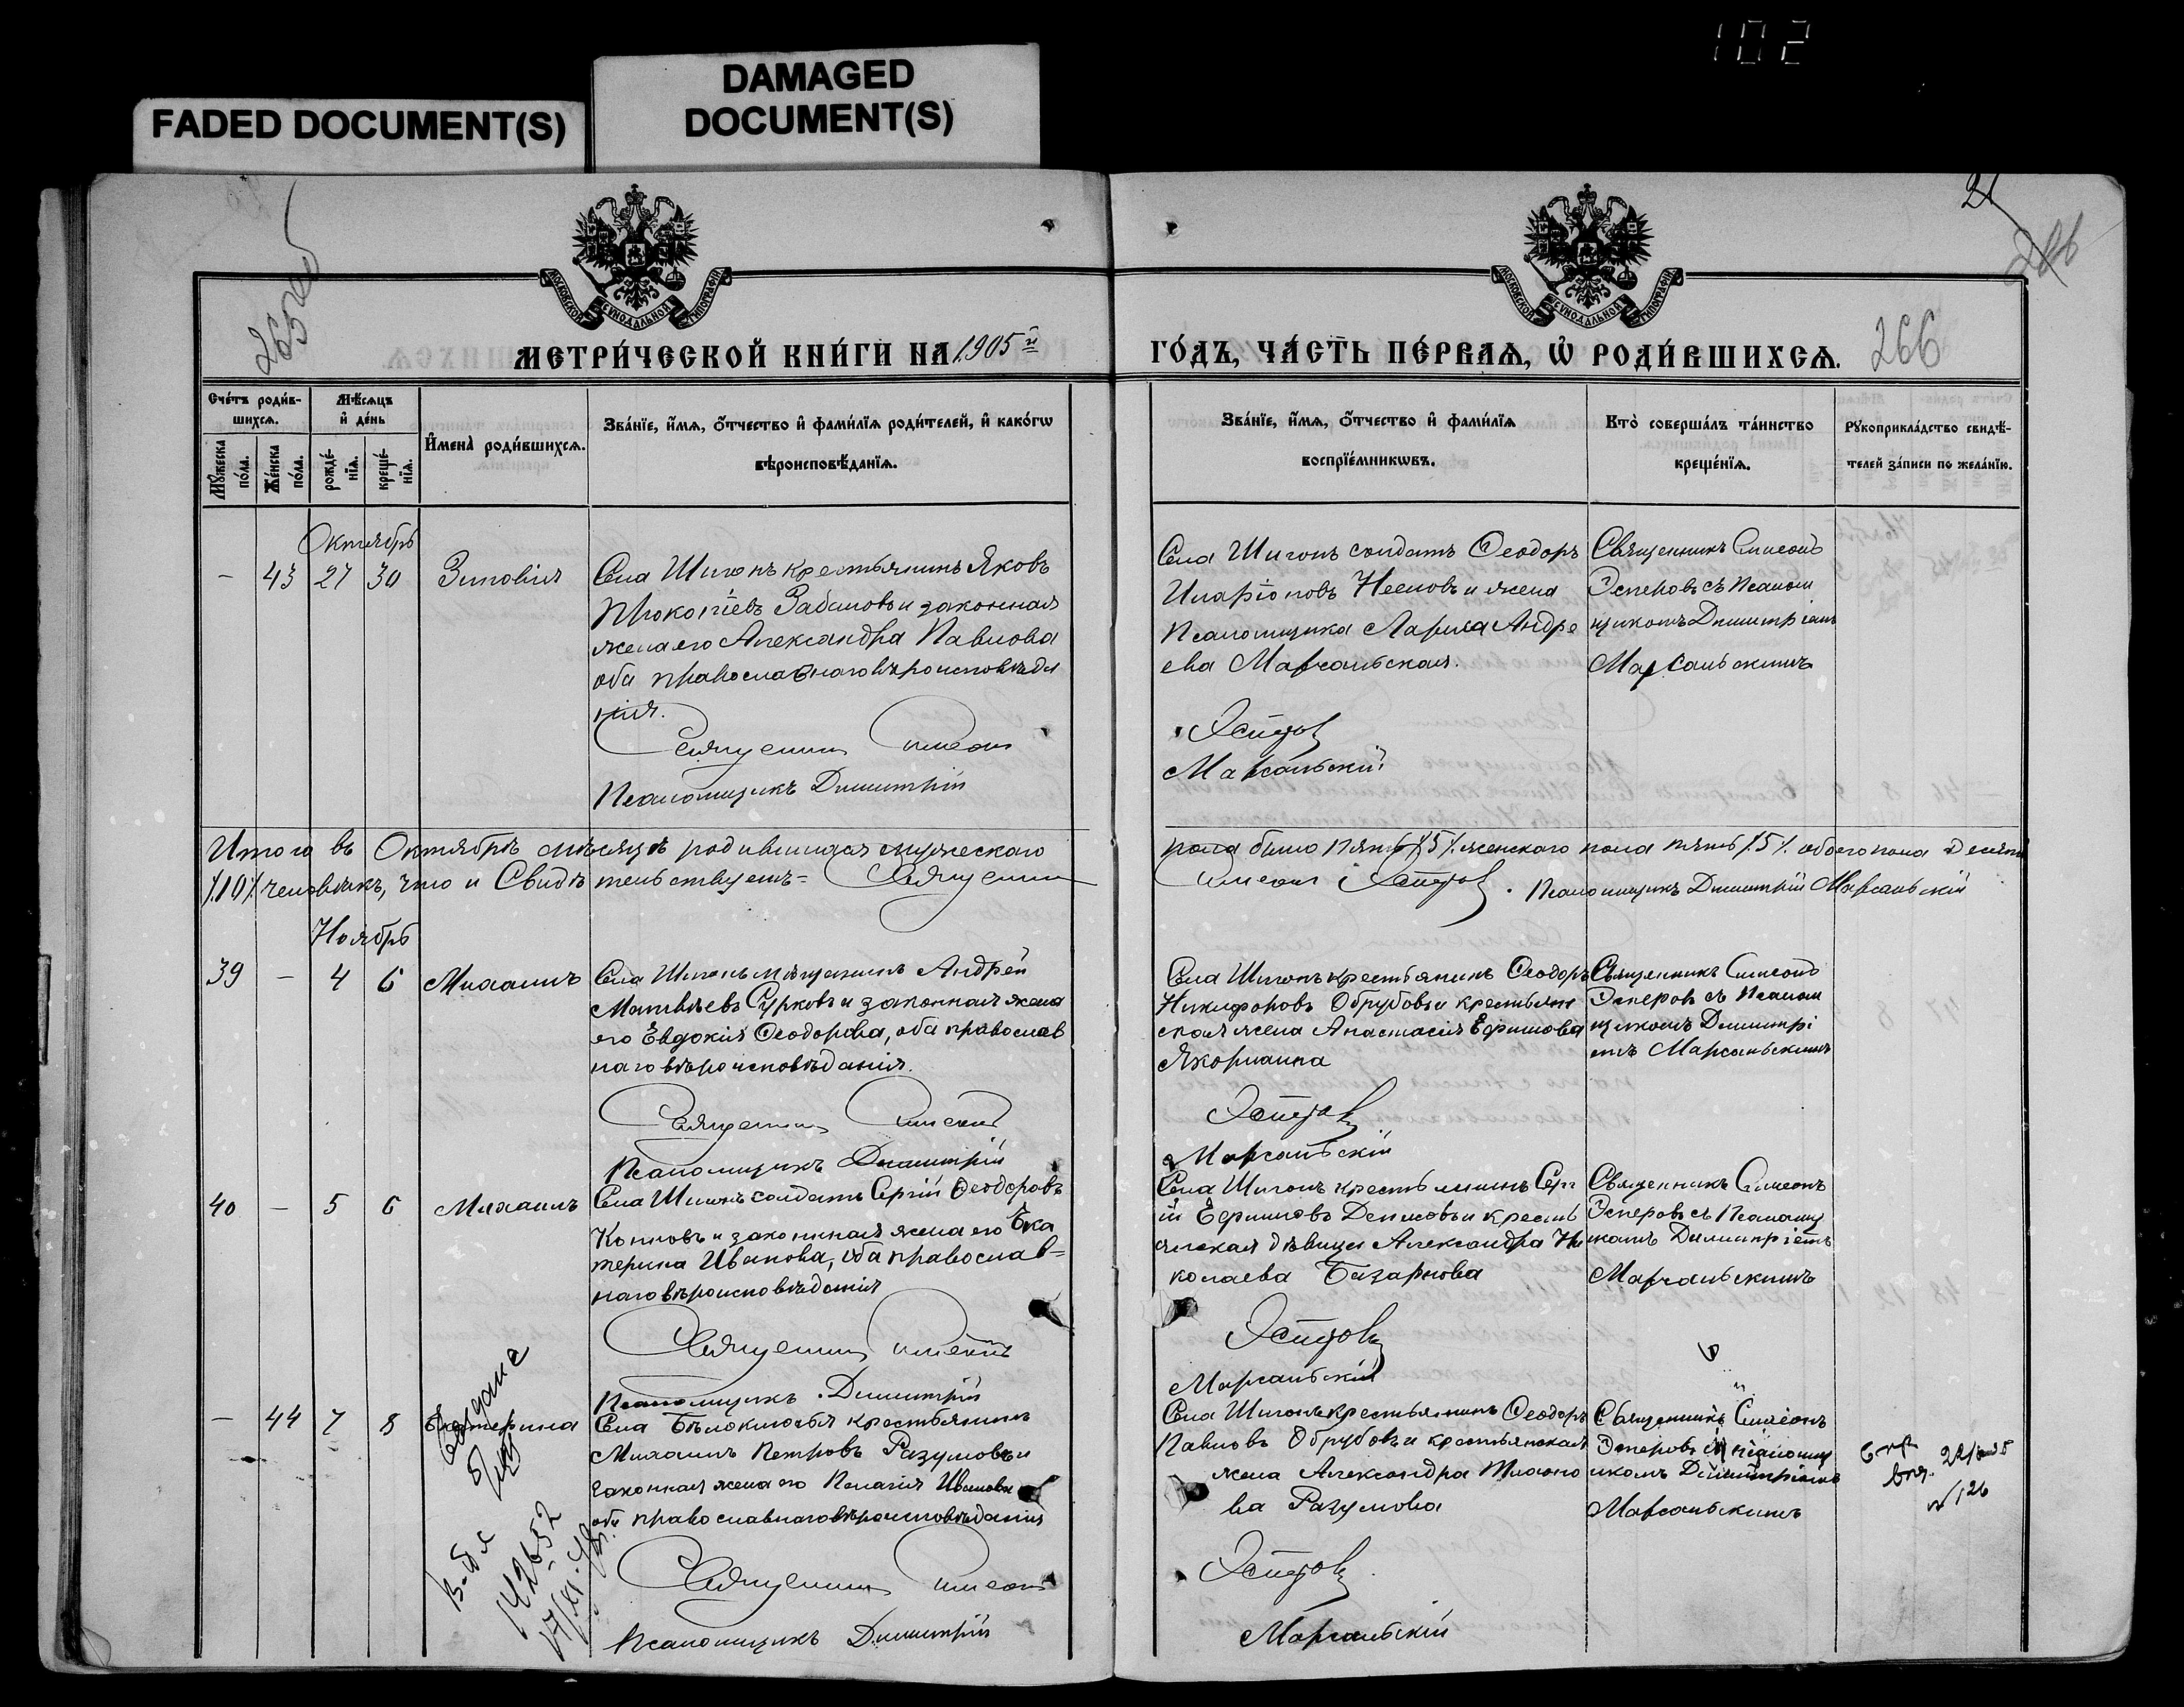 102
FADED DOCUMENT(S)
DAMAGED
DOCUMENT(S)
21
266
МОСКОВСКОЙ СѴНОДАЛЬНОЙ ТИПОГРАФІИ
МОСКОВСКОЙ СѴНОДАЛЬНОЙ ТИПОГРАФІИ
МЕТРИ́ЧЕСКОЙ КНИ́ГИ НА 1905й
ГО́ДЪ, ЧА́СТЬ ПЕ́РВАѦ, Ѡ҆ РОДИ́ВШИХСѦ.
Сче́тъ роди́в-
шихсѧ.
Мѣ́сѧцъ
и҆ де́нь
Мꙋ́жеска по́ла.
Же́нска по́ла.
рожде́-нїѧ.
креще́-нїѧ.
И҆мена̀ роди́вшихсѧ.
Зва́нїе, и҆́мѧ, ѻ҆́тчество и҆ фами́лїѧ роди́телей, и҆ како́гѡ
вѣроисповѣ́данїѧ.
Зва́нїе, и҆́мѧ, ѻ҆́тчество и҆ фами́лїѧ
воспрїе́мникѡвъ.
Кто̀ соверша́лъ та́инство
креще́нїѧ.
Рꙋкоприкла́дство свидѣ́-
телей за́писи по жела́нїю.
Октябрь
— 43 27 30 Зиновія
Села Шигонъ крестьянинъ Яковъ
Прокопіевъ Забаловъ и законная
жена его Александра Павлова
оба православнаго вѣроисповѣда
нія.
Священникъ Симеон
Псаломщикъ Димитрій
Села Шигонъ солдатъ Ѳеодоръ
Иларіоновъ Неевовъ и жена
Псаломщика Лариса Андре
ева Марсальская.
Эсперов
Марсальскій
Священникъ Симеонъ
Эсперовъ съ Псалом
щикомъ Димитріемъ
Марсальскимъ
Итого въ Октябрѣ мѣсяцѣ родившихся мужескаго
пола было пять /5/. женскаго пола пять /5/. обоего пола десять
/.10/. человѣкъ, что и Свидѣтельствуетъ= Священник
Симеон Эсперов. Псаломщикъ Димитрій Марсальскій
Ноябрь
39 — 4 6 Михаилъ
Села Шигонъ мѣщанинъ Андрей
Матвѣевъ Сурковъ и законная жена
его Евдокія Ѳеодорова, оба православ
наго вѣроисповѣданія.
Священник Симеон
Псаломщикъ Димитрій
Села Шигонъ крестьянинъ Ѳеодоръ
Никифоровъ Обрубовъ и крестьян
ская жена Анастасія Ефимова
Якорнина
Эсперов
Марсальскій
Священникъ Симеонъ
Эсперовъ съ Псалом
щикомъ Димитрі
емъ Марсальскимъ
40 — 5 6 Михаилъ
Села Шигонъ солдатъ Сергій Ѳеодоровъ
Конновъ и законная жена его Ека
терина Иванова, оба православ=
наго вѣроисповѣданія
Священник Симеонъ
Псаломщикъ Димитрій
Села Шигонъ крестьянинъ Серг
ій Ефимовъ Денисовъ и кресть
янская дѣвица Александра Ни
колаева Базарнова
Эсперовъ
Марсальскій
Священникъ Симеонъ
Эсперовъ съ Псаломщ
икомъ Димитріемъ
Марсальскимъ
— 44 7 8 Екатерина
Села Бѣлоключья крестьянинъ
Михаилъ Петровъ Разумовъ и
законная жена его Пелагія Иванова
оба православнаго вѣроисповѣданія
Священник Симеон
Псаломщикъ Димитрій
Села Шигонъ крестьянинъ Ѳеодоръ
Павловъ Обрубовъ и крестьянская
жена Александра
ва Разумова
Эсперов
Марсальскій
Священникъ Симеонъ
Эсперовъ съ псаломщ
икомъ Димитріемъ
Марсальскимъ
№126
142652